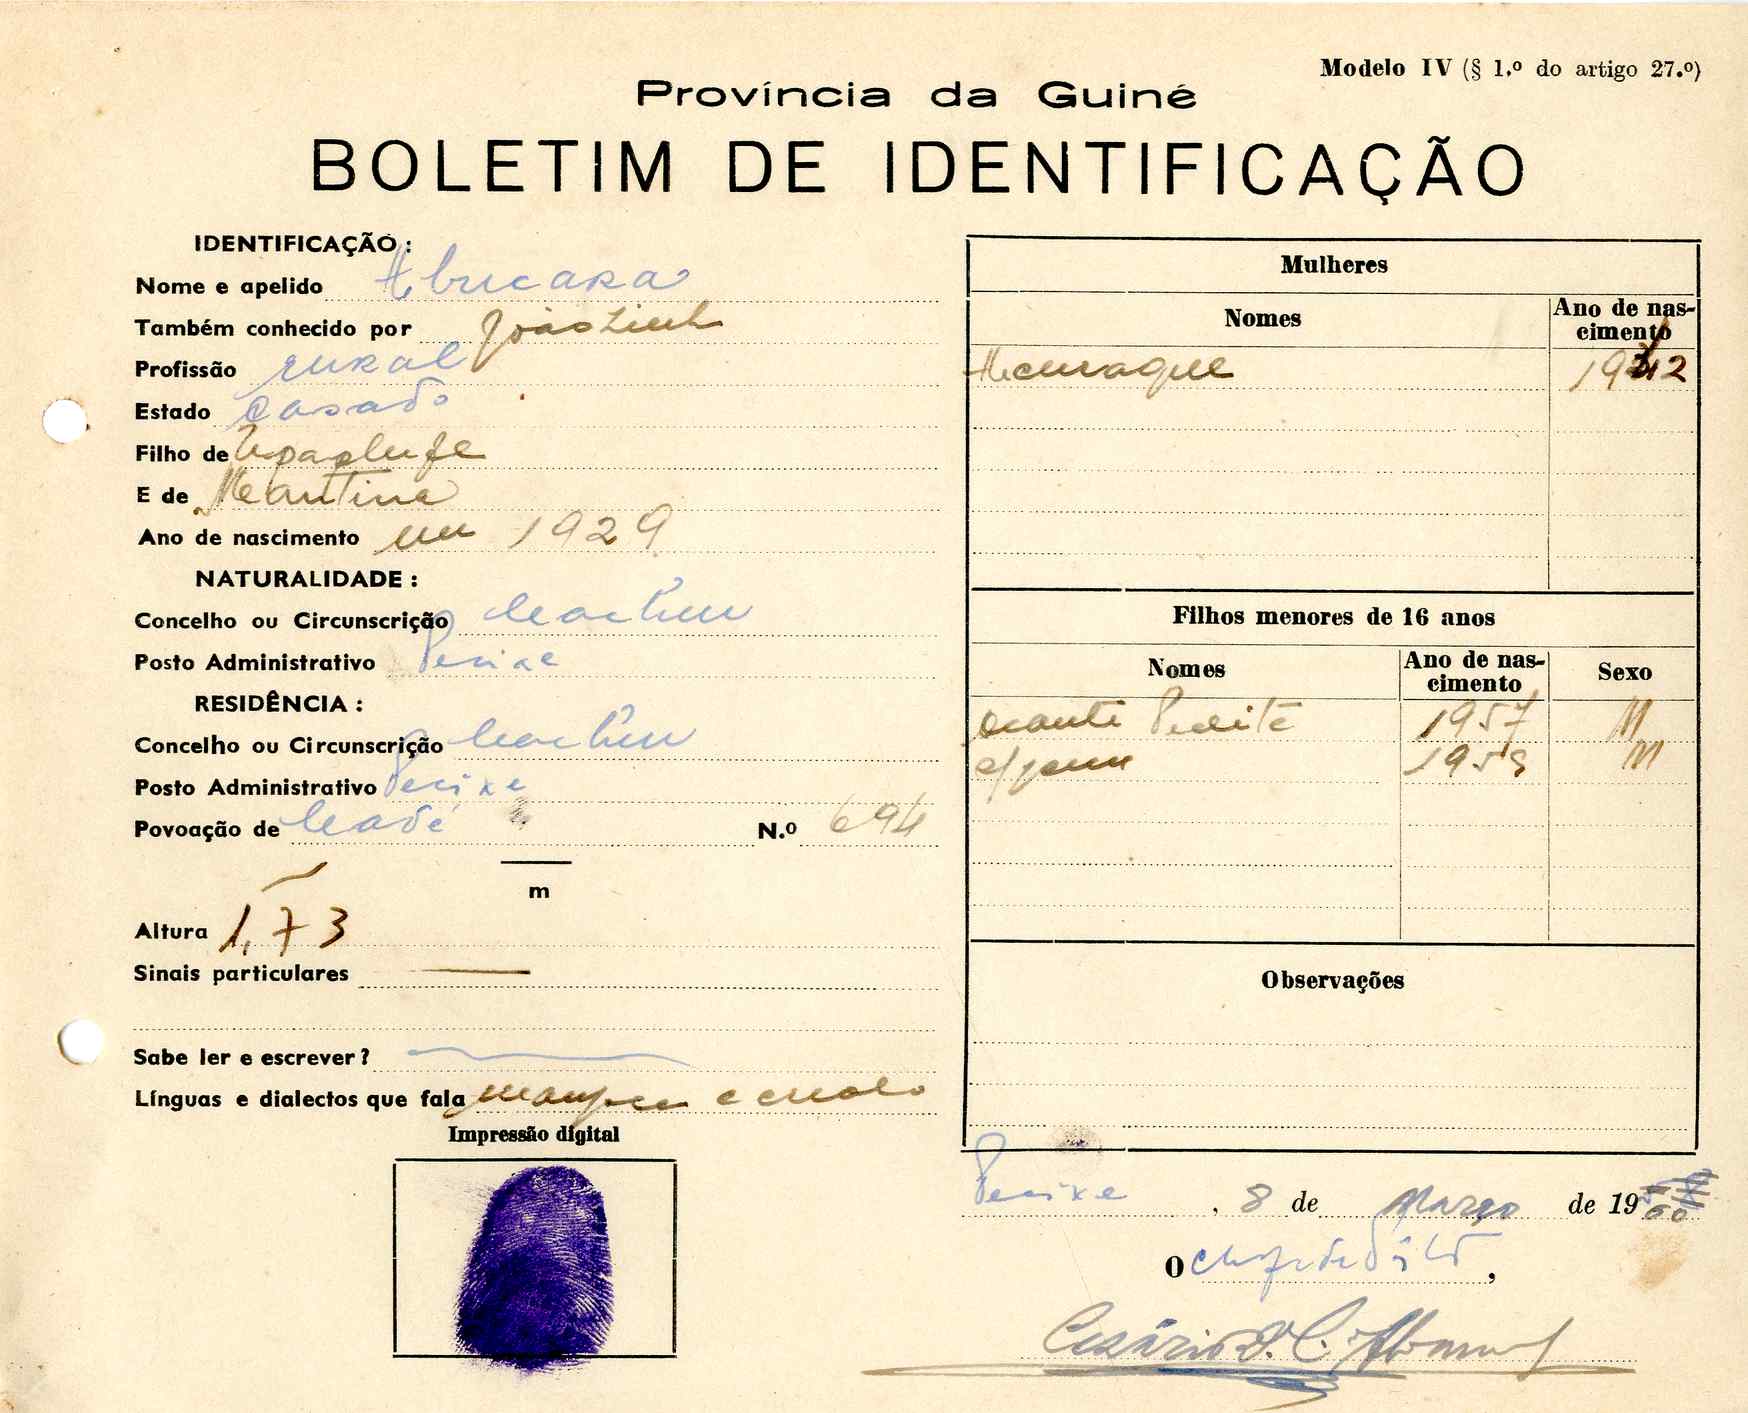 Modelo IV (§ 1.º do artigo 27.º)
Província da Guiné
BOLETIM DE IDENTIFICAÇÃO
IDENTIFICAÇÃO :
Nome e apelido Abucara
Também conhecido por João
Profissão rural
Estado casado
Filho de
E de
Ano de nascimento em 1929
NATURALIDADE :
Concelho ou Circunscrição Cacheu
Posto Administrativo Pecixe
RESIDÊNCIA :
Concelho ou Circunscrição Cacheu
Posto Administrativo Pecixe
Povoação de N.º 694
m
Altura 1,73
Sinais particulares —
Sabe ler e escrever?
Línguas e dialectos que fala manjaco e crioulo
Impressão digital
Mulheres
Nomes
Ano de nas-
cimento
1942
Filhos menores de 16 anos
Nomes
Ano de nas-
cimento
Sexo
1957 M
1959 M
Observações
Pecixe, 8 de Março de 1960
O chefe de Pôsto,
Cesário D. C.